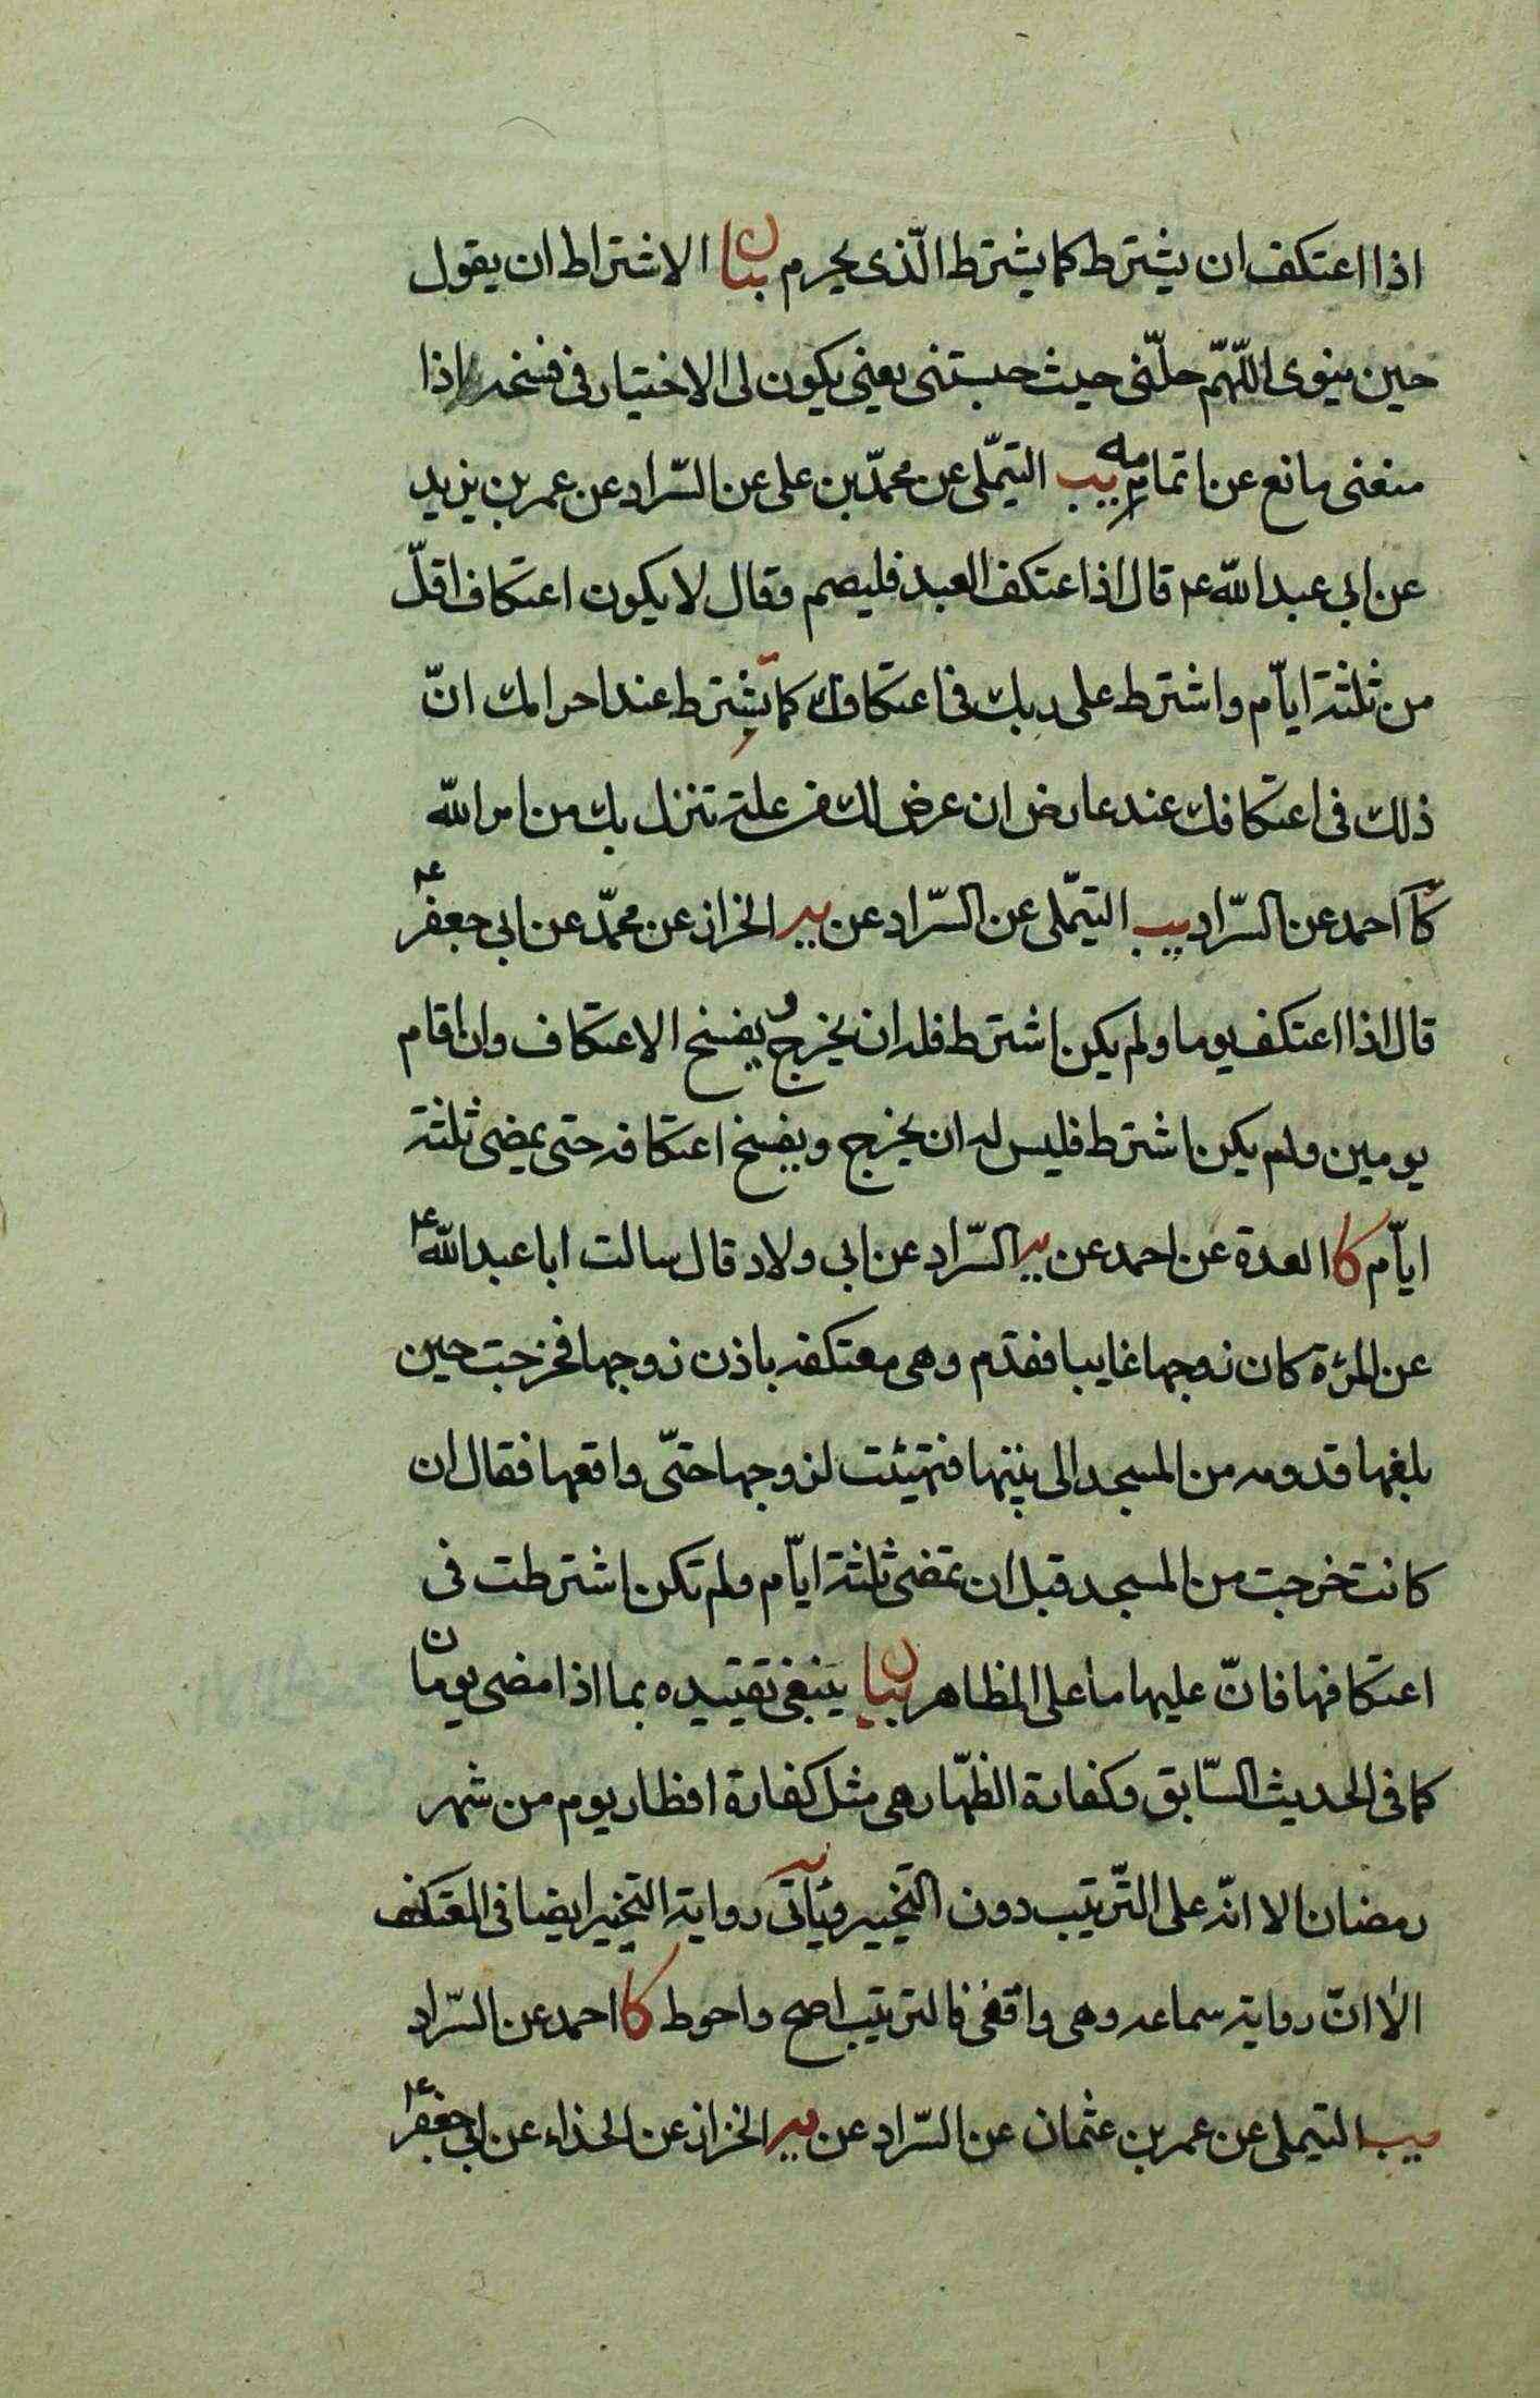 اذا اعتكف ان يشترط كما يشترط الّذى يحرم بيان الاشتراط ان يقول
حين ينوى اللّهمّ حلّنى حيث حبستنى يعنى يكون لى الاختيار فى فسخه اذا
منعنى مانع عن اتمامه يب التيمّلى عن محمّد بن على عن السّراد عن عمر بن يزيد
عن ابى عبد اللّه ع قال اذا اعتكف العبد فليصم وقال لا يكون اعتكاف اقلّ
من ثلثة ايّام واشترط على ربك فى اعتكافك كما تشترط عند احرامك انّ
ذلك فى اعتكافك عند عارض ان عرض لك من علة تنزل بك من امر اللّه
كا احمد عن السّراد يب التيمّلى عن السّراد عن ير الخراز عن محمّد عن ابى جعفر ع
قال اذا اعتكف يوما ولم يكن اشترط فله ان يخرج و يفسخ الاعتكاف وان اقام
يومين ولم يكن اشترط فليس له ان يخرج ويفسخ اعتكافه حتى يمضى ثلثة
ايّام كا العدة عن احمد عن ير السّراد عن ابى ولاد قال سالت ابا عبد اللّه ع
عن المرءة كان زوجها غايبا فقدم وهى معتكفه باذن زوجها فخرجت حين
بلغها قدومه من المسجد الى بيتها فتهيئت لزوجها حتّى واقعها فقال ان
كانت خرجت من المسجد قبل ان تمضى ثلثة ايّام ولم تكن اشترطت فى
اعتكافها فانّ عليها ما على المظاهر بيان ينبغى تقييده بما اذا مضى يومان
كما فى الحديث السّابق وكفارة الظّهار هى مثل كفارة افطار يوم من شهر
رمضان الا انّه على التّرتيب دون التخيير وياتى رواية التخيير ايضا فى المعتكف
الا انّ رواية سماعه وهى واقفى فالترتيب اصح واحوط كا احمد عن السّراد
يب التيملى عن عمر بن عثمان عن السّراد عن ير الخراز عن الحذاء عن ابى جعفر ع